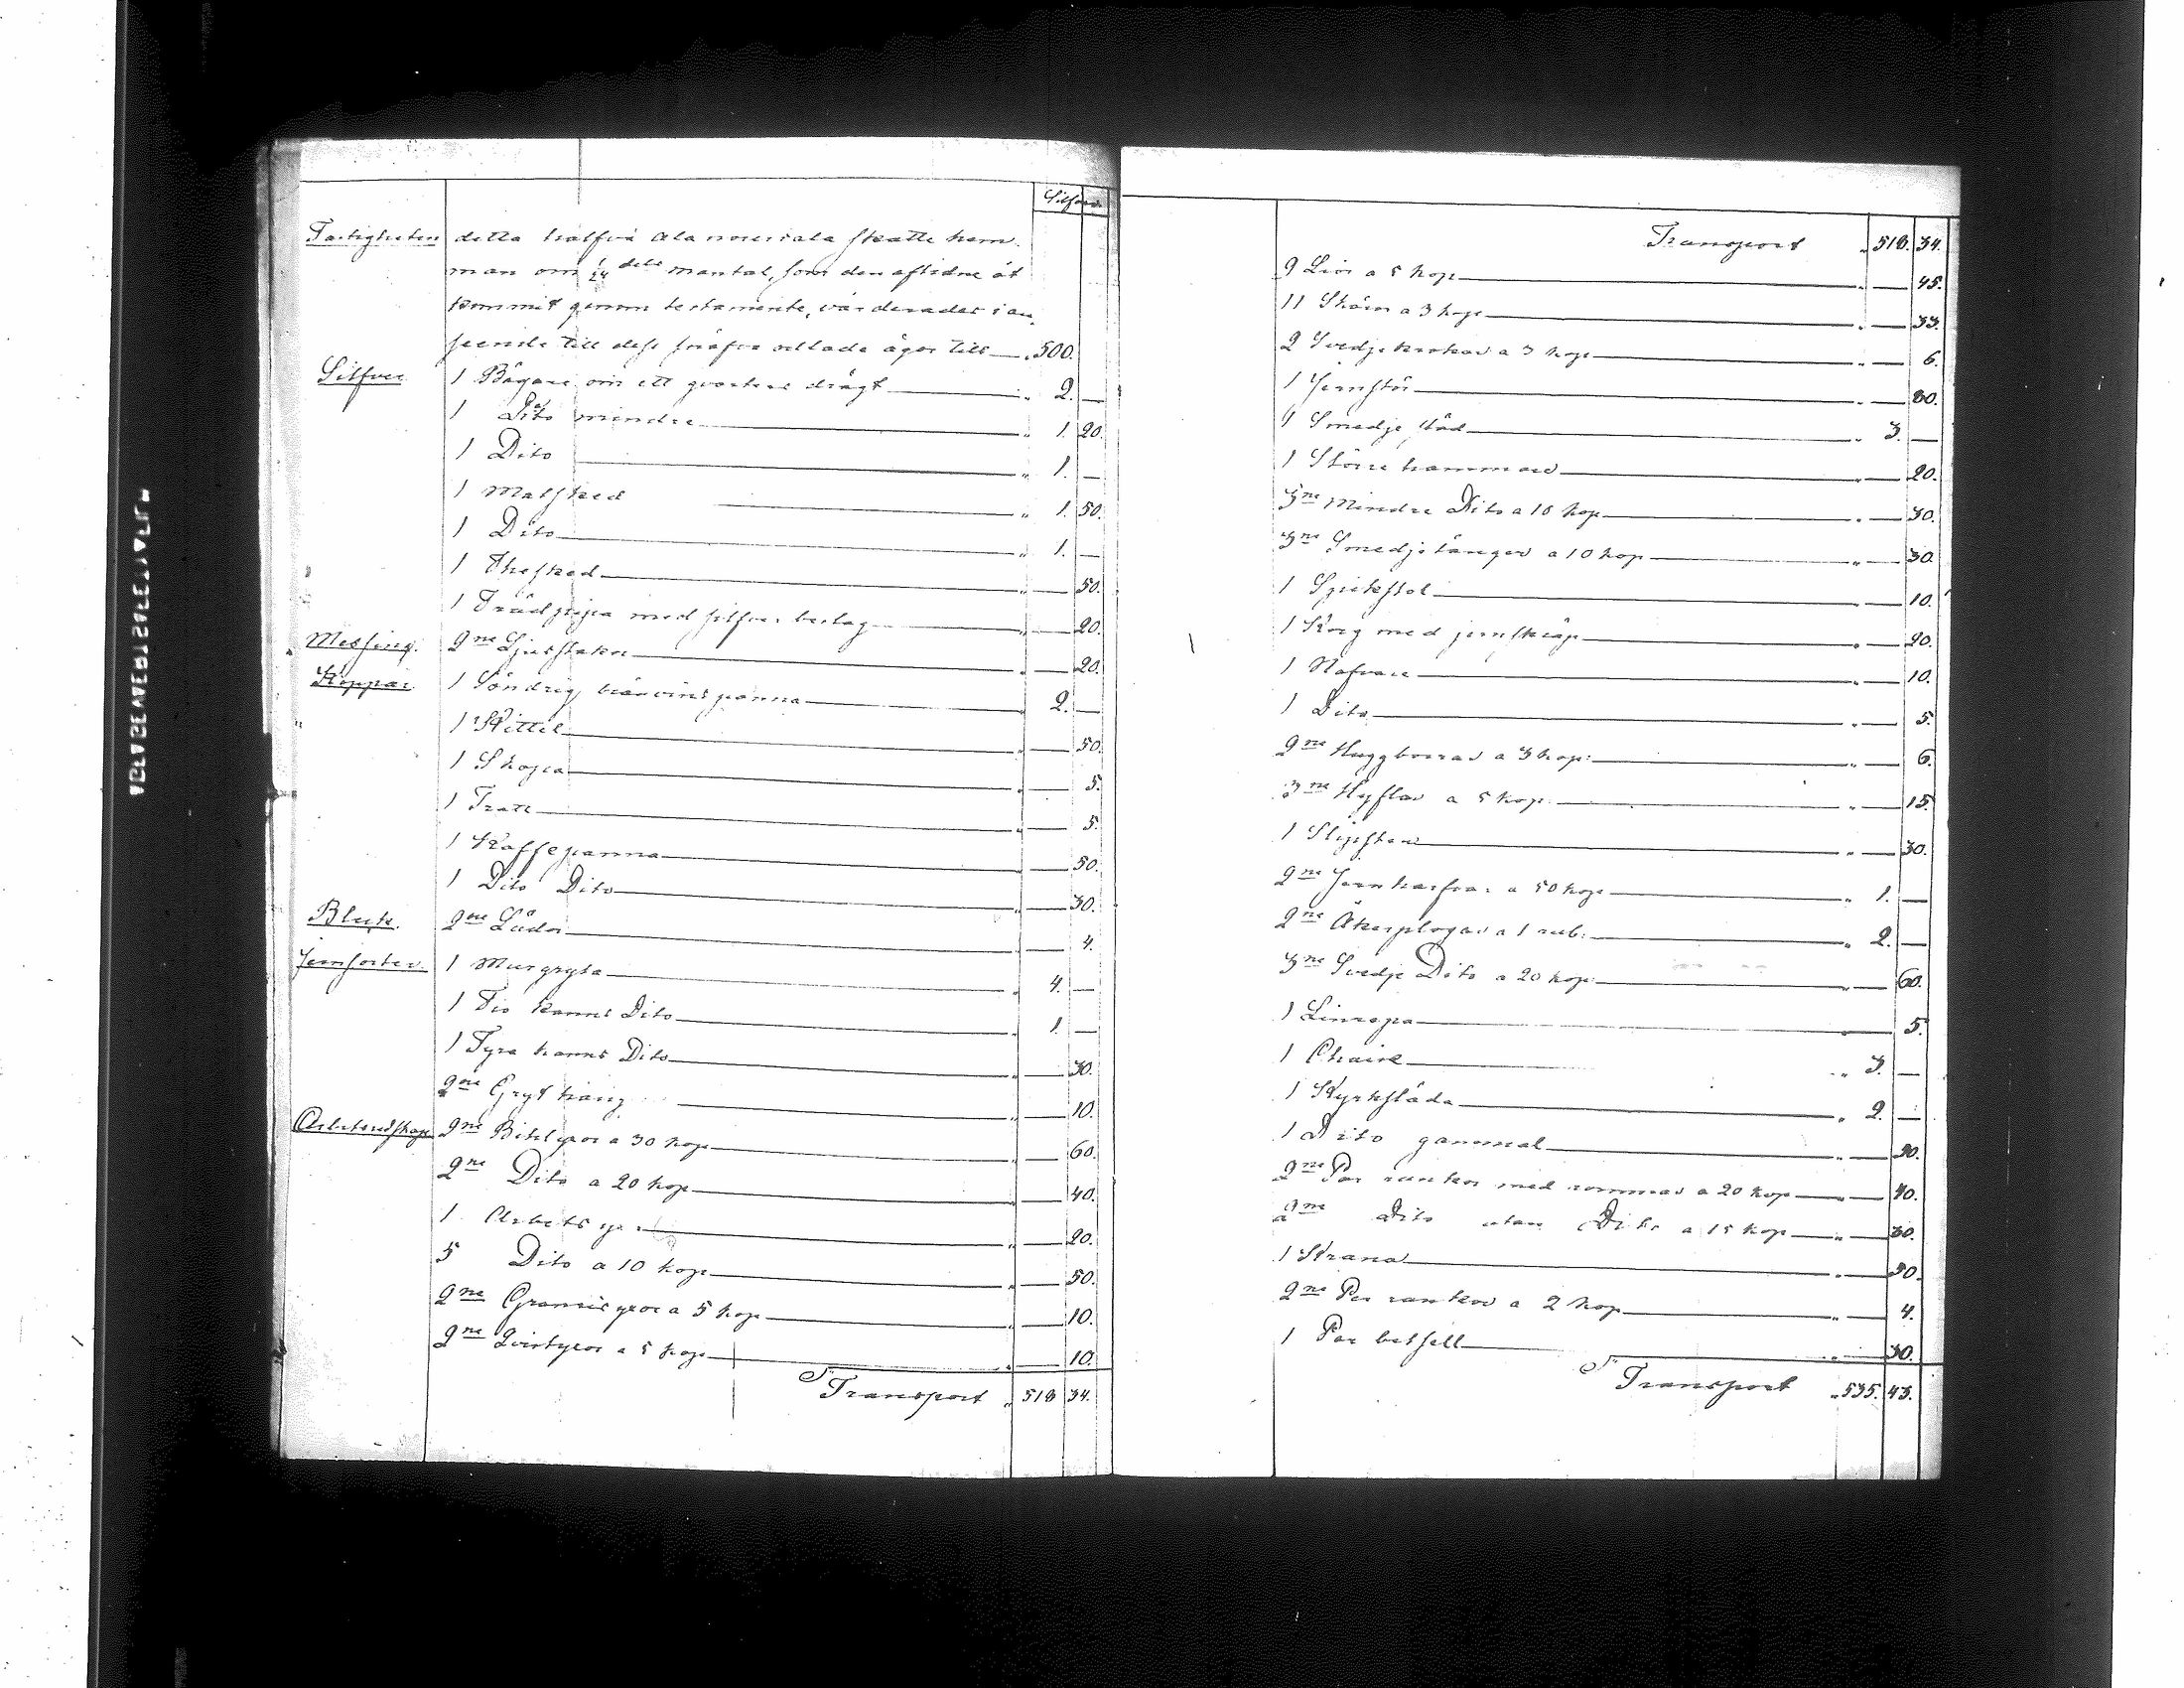 Silfver
Fastigheten detta halfva Alanouriala skatte hem-
man om 1/24 dels mantal, som den aflidne åt
kommit genom testamente, värderades i an-
seende till dess svåra odlade ägor till 500.
Silfver 1 Bägare om ett qvarters drägt " 2. —
1 Dito mindre " 1. 20.
1 Dito " 1. —
1 Matsked " 1. 50.
1 Dito " 1. —
1 Thesked " — 50.
1 Trädpipa med silfver beslag " — 20.
Messing. 2ne Ljusstakar " — 20.
Koppar. 1 Söndrig brännvinspanna " 2. —
1 Kittel " — 50.
1 Skopa " — 5.
1 Tratt " — 5.
1 Kaffepanna " — 50.
1 Dito Dito " — 30.
Bleck. 2ne Lådor " — 4.
Jernsorter. 1 Murgryta " 4. —
1 Tio kanns Dito " 1. —
1 Fyra kanns Dito " — 30.
2ne Gryt häng " — 10.
Arbetsredskap 2ne Bihlyxor a 30 kop " — 60.
2ne Dito a 20 kop " — 40.
1 Arbets yx " — 20.
5 Dito a 10 kop " — 50.
2ne Granrisyxor a 5 kop " — 10.
2ne Qvistyxor a 5 kop " — 10.
Transport " 518 34.
Transport " 518. 34.
9 Liar a 5 kop " — 45.
11 Skäror a 3 kop " — 33.
2 Svedjekrokar a 3 kop " — 6.
1 Jernstör " — 80.
1 Smedje städ " 3. —
1 Större hammare " — 20.
3ne Mindre Dito a 10 kop " — 30.
3ne Smedjetänger a 10 kop " — 30.
1 Spikstol " — 10.
1 Korg med jernskräp " — 20.
1 Nafvare " — 10.
1 Dito " — 5.
2ne Huggborrar a 3 kop: " — 6.
3ne Hyflar a 5 kop " — 15.
1 Slipsten " — 30.
2ne Jernharfvar a 50 kop " 1. —
2ne Åkerplogar a 1 rub: " 2. —
3ne Svedje Dito a 20 kop " — 60.
1 Linrepa " — 5.
1 Chaise " 3. —
1 Kyrksläda " 2. —
1 Dito gammal " — 20.
2ne Par rankor med rommar a 20 kop " — 40.
2ne Dito utan Dito a 15 kop " — 30.
1 Krana " — 50.
2ne Par rankor a 2 kop " — 4.
1 Par betsell " — 30.
Transport " 535. 43.